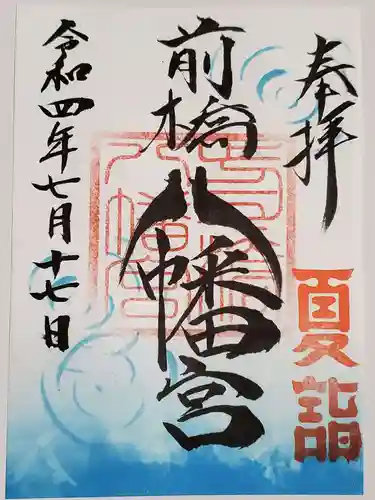 奉拝
夏詣
前橋八幡宮
令和四年七月十七日